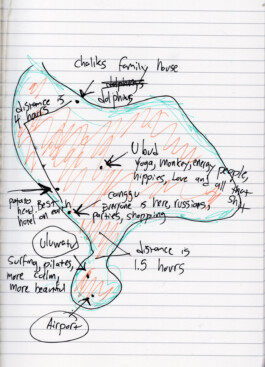 chaliks family house
dolphins
distance 3
4 hours
Ubud
yoga, monkey, energy people,
hippies, love and all that
shit
potato
head. Best
hotel on earth
canggu
everyone is here, russians,
parties, shopping
Uluwatu
distance is
1.5 hours
surfing, pilates,
more calm,
more beautiful
Airport